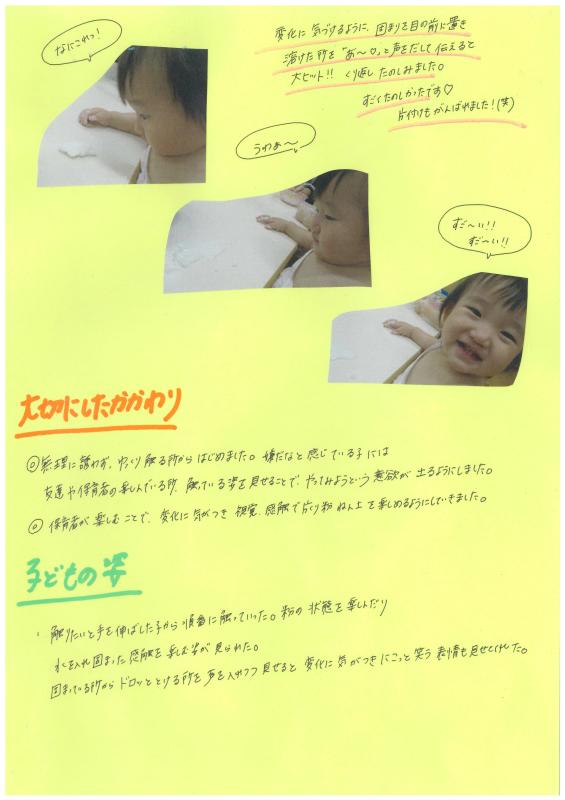 なにこれっ!
変化に気づけるように、固まりを目の前に置き
溶けた所を"あ〜♡"と声をだして伝えると
大ヒット!! くり返したのしみました。
すごくたのしかったです♡
片付けもがんばれました!(笑)
うわぁ〜
すご〜い!!
すご〜い!!
大切にしたかかわり
◎無理に誘わず、ゆっくり触る所からはじめました。嫌だなと感じている子には
友達や保育者の楽しんでいる所、触っている姿を見せることで、やってみようという意欲が出るようにしました。
◎保育者が楽しむことで、変化に気がつき視覚、感触で片くり粉ねん土を楽しめるようにしていきました。
子どもの姿
・触りたいと手を伸ばした子から順番に触っていった。粉の状態を楽しんだり
水を入れ固まった感触を楽しむ姿が見られた。
固まっている所からドロッととける所を声を入れつつ見せると変化に気がつきにこっと笑う表情も見せてくれた。